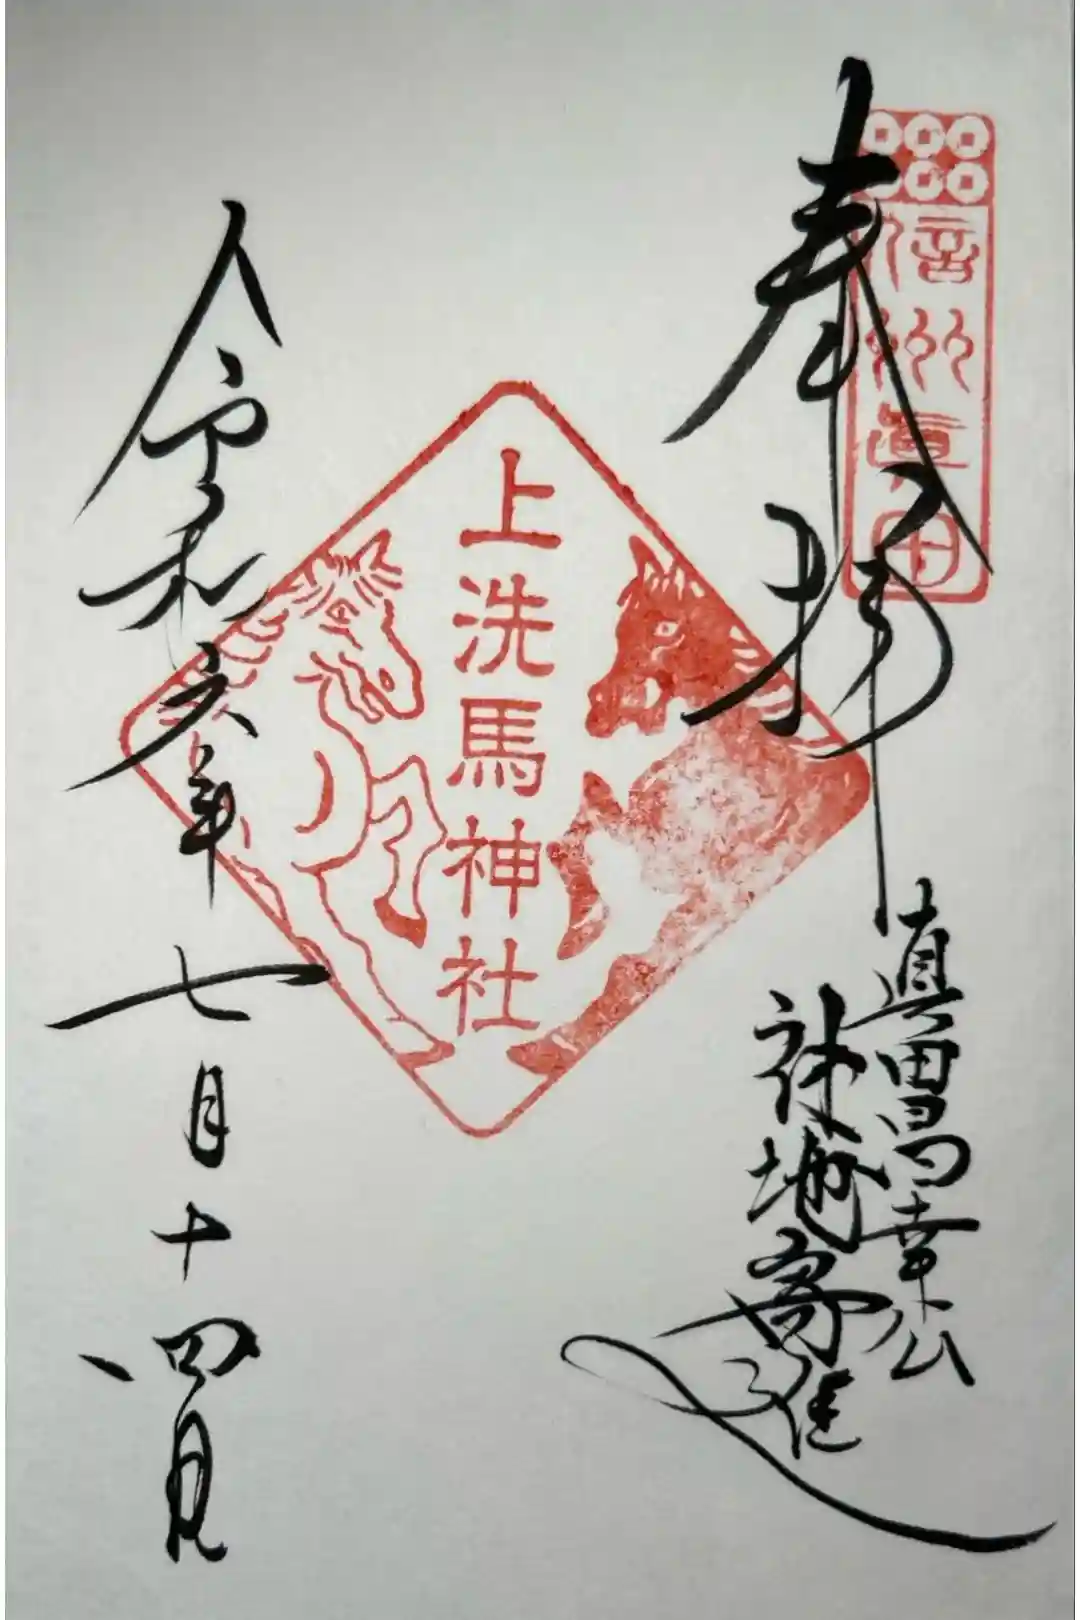 奉拝
信州眞田
真田昌幸公
神地寄進
上洗馬神社
令和六年七月十四日